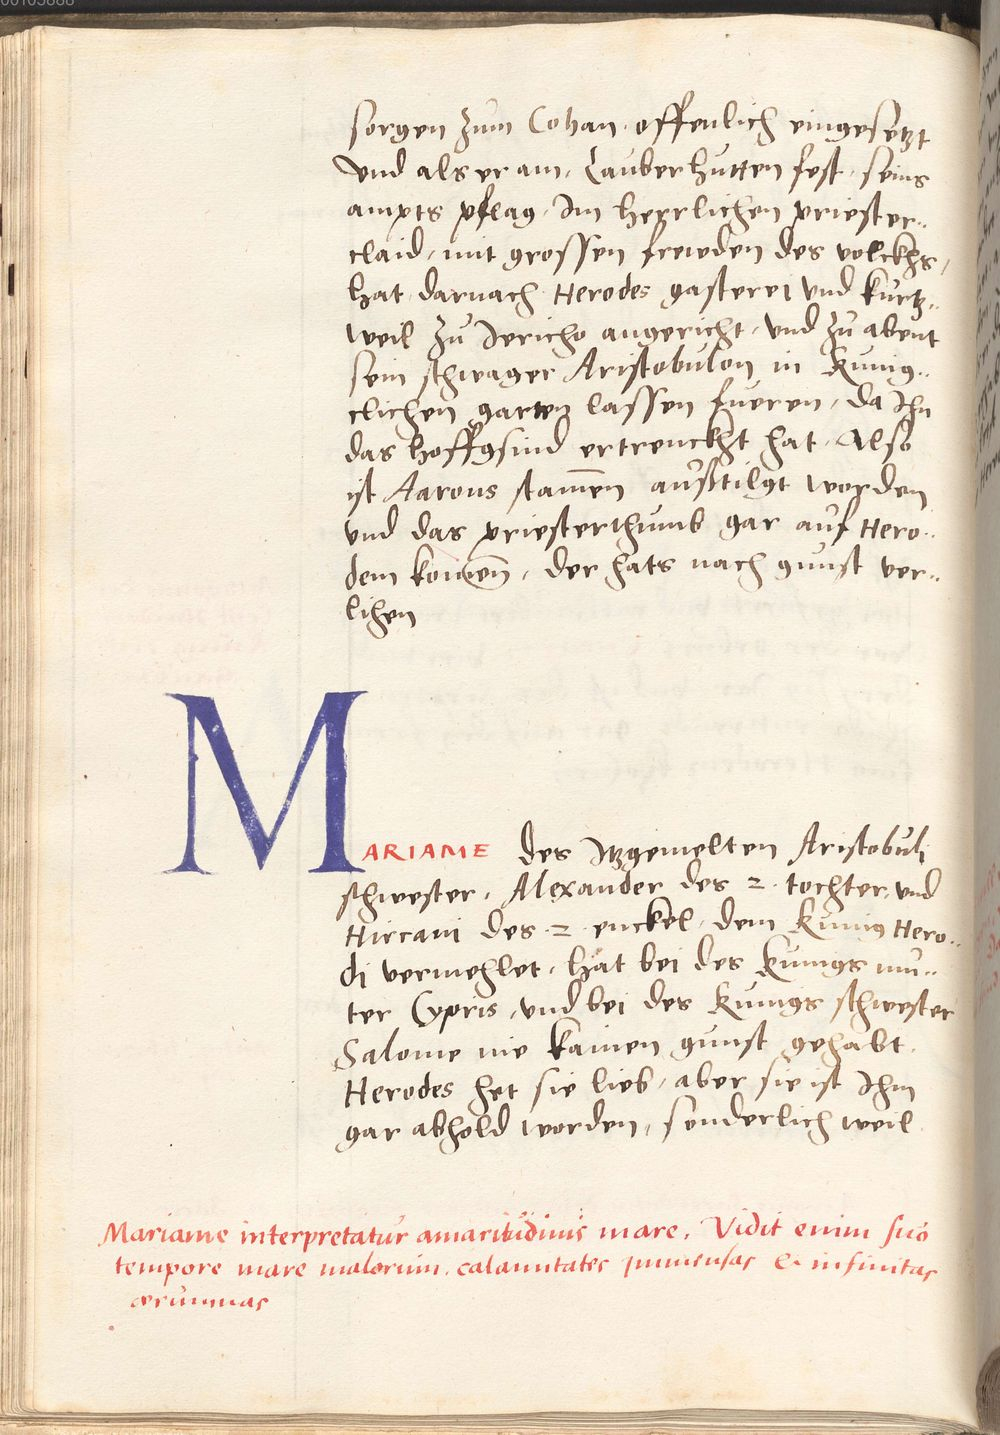 sorgen zum Cohan offenlich eingesetzt
vnd als er am, Lauberhutten fest, seins
ampts pflag, Im herrlichen priester..
claid, mit grossen frewden des volckhs,
hat darnach Herodes gasterei vnd kurtz..
weil zu Jericho angericht, vnd zu abent
sein schwager Aristobulon in kunig..
clichen garten lassen fueren, da Ihn
das hoffgsind ertrenckht hat. Also
ist Aarons stam̄en außtilgt worden
vnd das priesterthumb gar auf Hero..
dem kom̄en, der hats nach gunst ver..
lihen
MARIAME des Itzgemelten Aristobuli
schwester, Alexander des 2. tochter, vnd
Hircani des 2 enckel, dem Kunig Hero..
di vermehlet, hat bei des kunigs mu..
ter Cypris, vnd bei des kunigs schwester
Salome nie kainen gunst gehabt.
Herodes het sie lieb, aber sie ist Ihm
gar abhold worden, sonderlich weil
Mariame interpretatur amaritudinis mare. Vidit enim suo
tempore mare malorum, calamitates immensas & infinitas
ærumnas